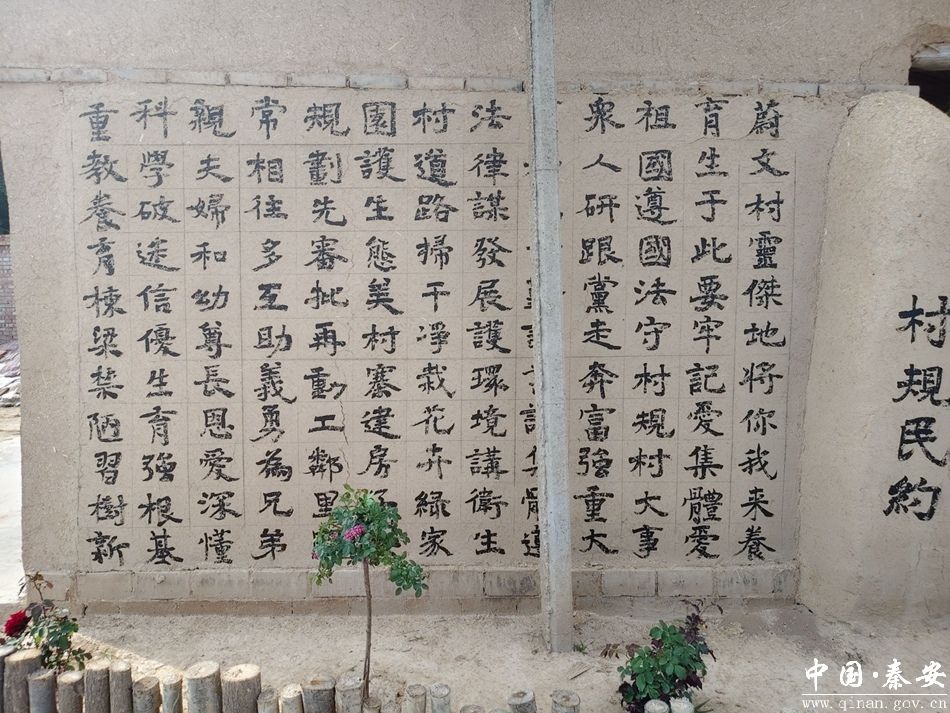 村規民約
蔚文村靈傑地將你我来養
育生于此要牢記愛集體愛
祖國遵國法守村規村大事
衆人研跟黨走奔富強重大
體遵
法律謀發展護環境講衛生
村道路掃干淨栽花卉緑家
園護生態美村寨建房
規劃先審批再動工鄰里
常相往多互助義勇為兄弟
親夫婦和幼尊長恩愛深懂
科學破迷信優生育強根基
重教養育棟梁禁陋習樹新
中国·秦安
www.qinan.gov.cn